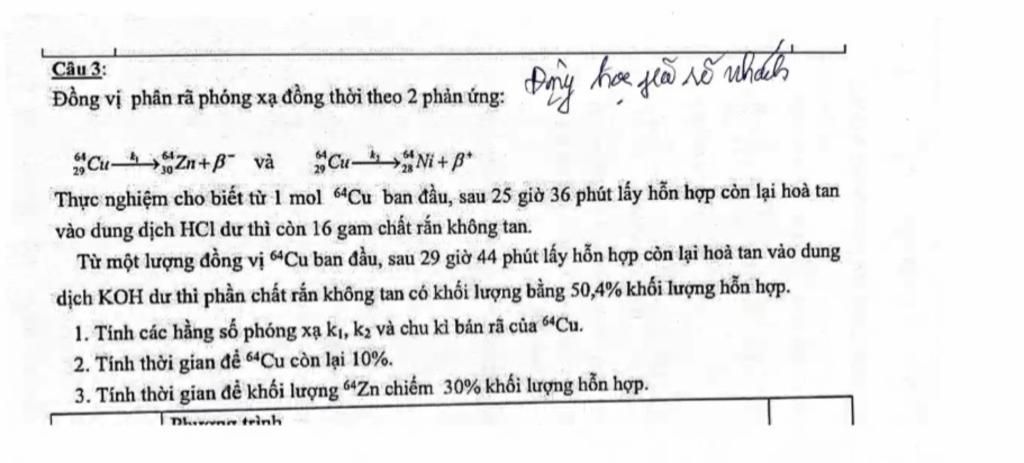 Câu 3:
Động học giả số nhánh
Đồng vị phân rã phóng xạ đồng thời theo 2 phản ứng:
⁶⁴₂₉Cu —k₁→ ⁶⁴₃₀Zn + β⁻ và ⁶⁴₂₉Cu —k₂→ ⁶⁴₂₈Ni + β⁺
Thực nghiệm cho biết từ 1 mol ⁶⁴Cu ban đầu, sau 25 giờ 36 phút lấy hỗn hợp còn lại hoà tan
vào dung dịch HCl dư thì còn 16 gam chất rắn không tan.
Từ một lượng đồng vị ⁶⁴Cu ban đầu, sau 29 giờ 44 phút lấy hỗn hợp còn lại hoà tan vào dung
dịch KOH dư thì phần chất rắn không tan có khối lượng bằng 50,4% khối lượng hỗn hợp.
1. Tính các hằng số phóng xạ k₁, k₂ và chu kì bán rã của ⁶⁴Cu.
2. Tính thời gian để ⁶⁴Cu còn lại 10%.
3. Tính thời gian để khối lượng ⁶⁴Zn chiếm 30% khối lượng hỗn hợp.
Phương trình